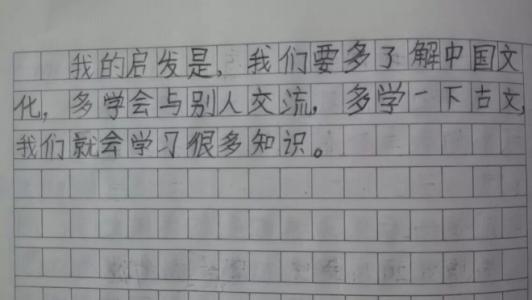 我的启发是，我们要多了解中国文
化，多学会与别人交流，多学一下古文，
我们就会学习很多知识。